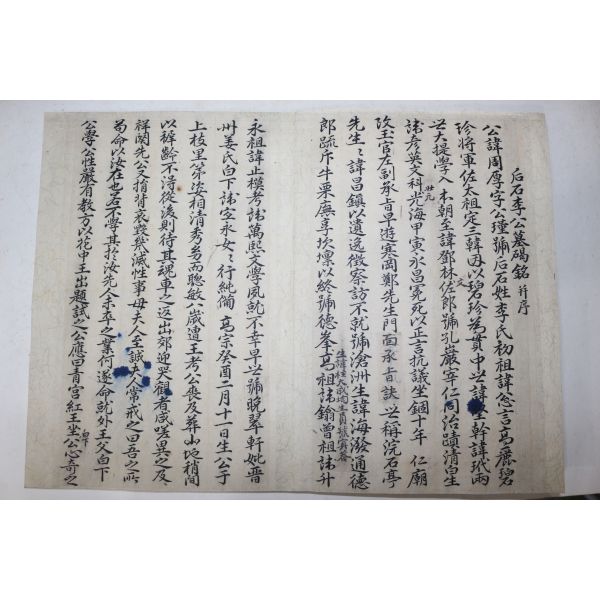 后石李公墓碣銘 并序
公諱周厚字公瑾號后石姓李氏初祖諱忩言高麗碧
珍將軍佐太祖定三韓因以碧珍爲貫中世諱堅幹諱玳兩
世大提學入本朝至諱鄧林佐郎號孔巖宰仁同治蹟清白生
諱彦英文科光海甲寅永昌冤死以正言抗議坐錮十年 仁廟
改玉官左副承旨早遊寒岡鄭先生門面承旨訣世稱浣石亭
先生諱昌鎭以遺逸徵察訪不就號滄洲生諱海潑通德
郎疏斥牛栗廡享坎壈以終號德峯高祖諱錀曾祖諱升
永祖諱止模考諱萬熙文學夙就不幸早世號晩翠軒妣晋
州姜氏白下諱宖永女女行純備 高宗癸酉二月十一日生公于
上枝里第姿相清秀而聰敏八歲遭王考公喪及葬山地稍間
以穉齡不得從後則待其魂車之返出郊迎哭觀者咸嗟異之及
祥関先公又捐背哀毁幾滅性事母夫人至誠夫人常戒之曰吾之所
苟命以汝在也若不學其於汝先人未卒之業何遂命就外王父白下
公學公性嚴有教方以抱中王出題試之公應曰青宮紅王坐白下公心奇之